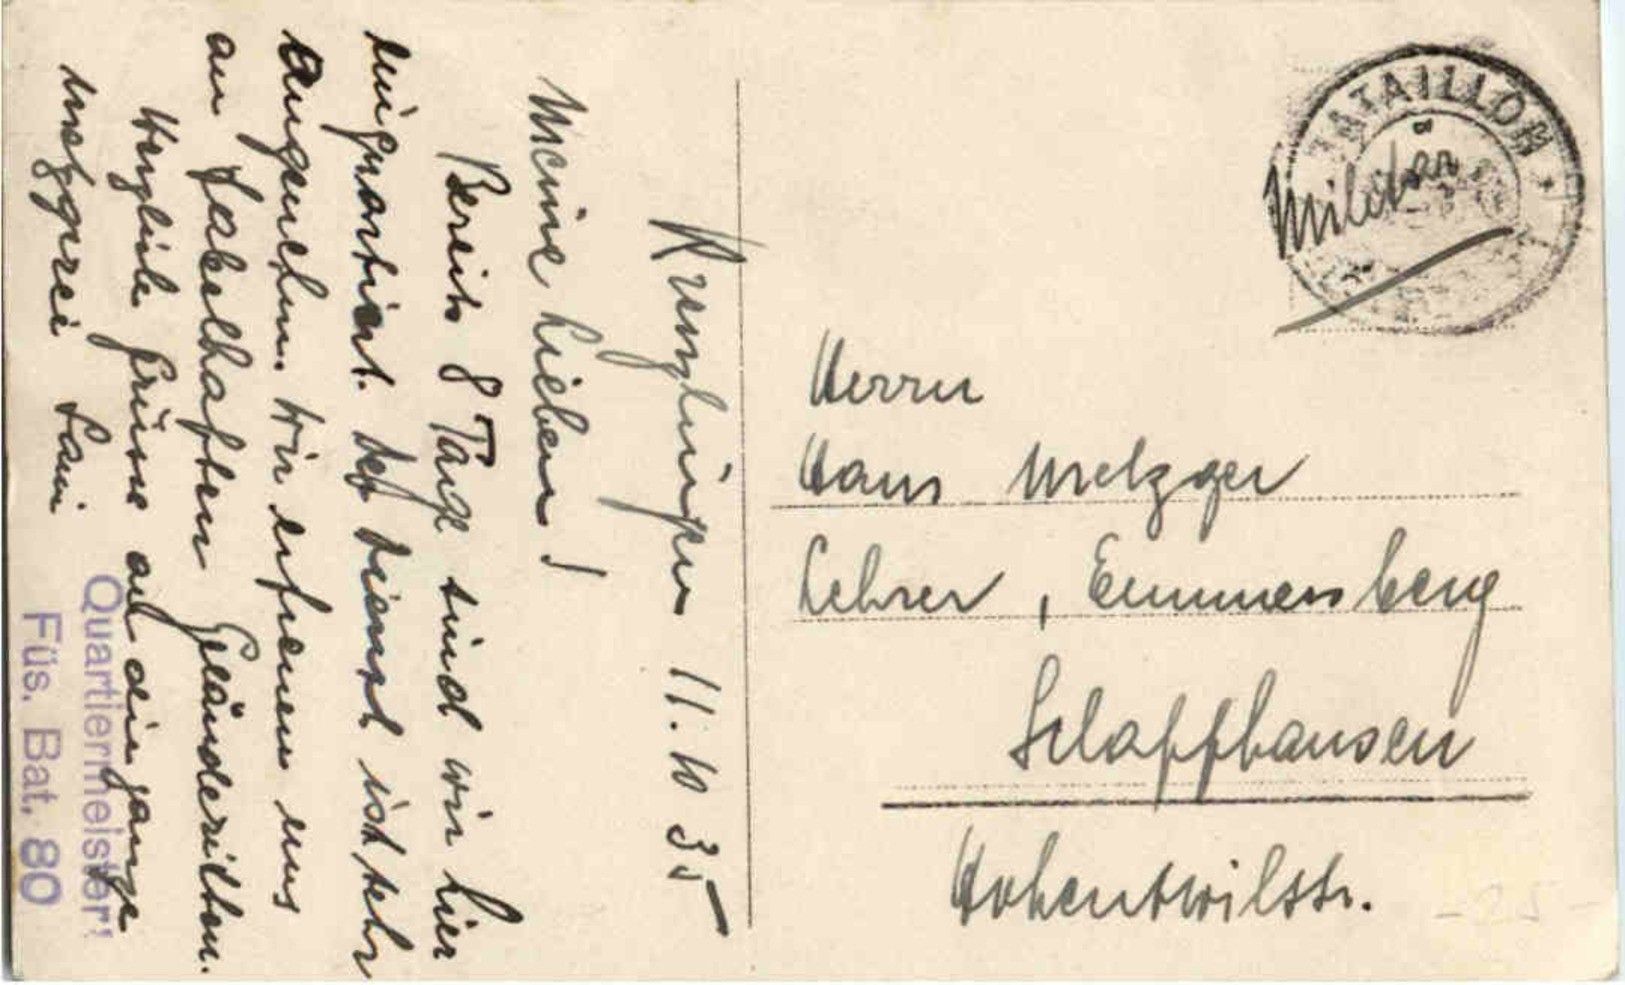 Kreuzlingen 11. 10 35
Meine Lieben!
Bereits 8 Tage sind wir hier
einquartiert. Der Dienst ist sehr
angenehm. Wir erfreuen uns
an fabelhaften Geländeritten.
Herzliche Grüsse an die ganze
Metzgerei
Quartiermeister
Füs. Bat. 80
BATAILLON
Militär
Herrn
Hans Metzger
Lehrer, Emmersberg
Schaffhausen
Hohentwilstr.
- 25 -